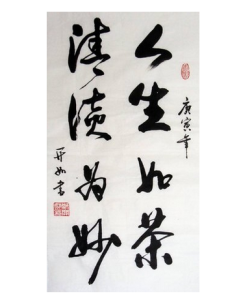 人生如茶
清淡为妙
庚寅年
开如书